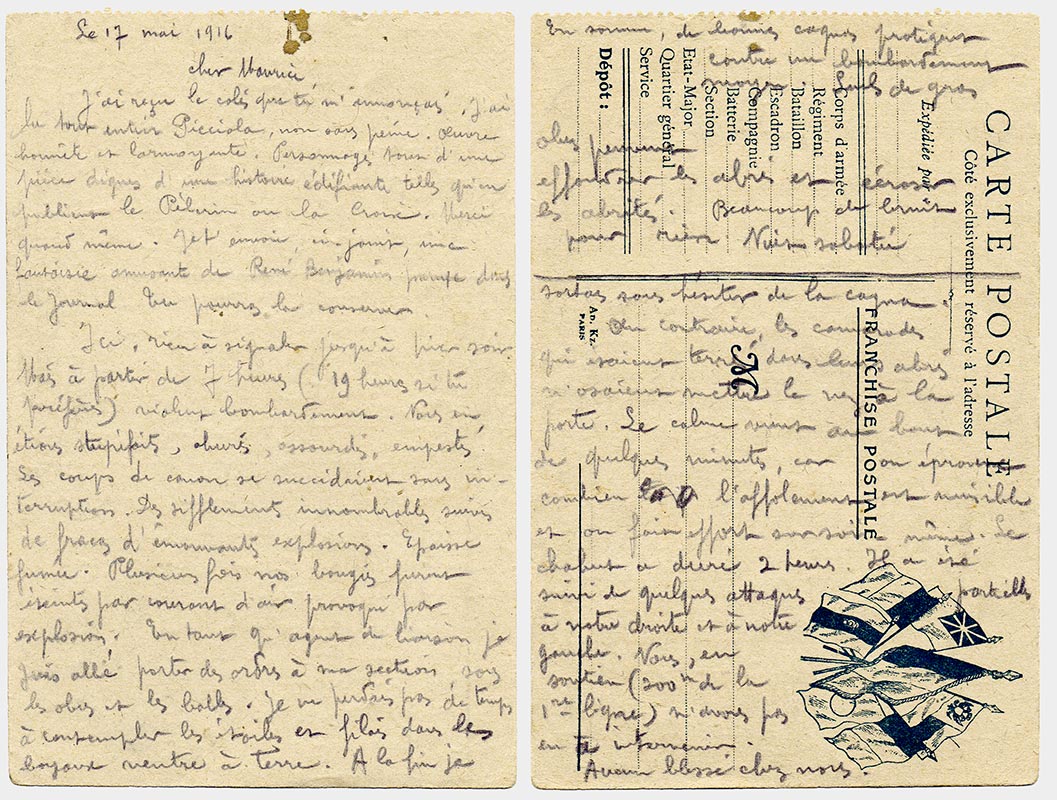 Le 17 mai 1916
cher Maurice,
J'ai reçu le colis que tu m'annonças. J'ai
lu tout entier Picciola, non sans peine. Œuvre
honnête et larmoyante. Personnages tous d'une
pièce dignes d'une histoire édifiante telles qu'en
publient le Pèlerin ou la Croix. Merci
quand même. Je t'envoie, ci-joint, une
fantaisie amusante de René Benjamin parue dans
le Journal. Tu pourras la conserver.
Ici, rien à signaler jusqu'à hier soir.
Mais à partir de 7 heures (19 heures si tu
préfères) violent bombardement. Nous en
étions stupéfaits, ahuris, assourdis, empestés.
Les coups de canon se succédaient sans in-
terruption. Des sifflements innombrables suivis
de fracas d'émouvantes explosions. Epaisse
fumée. Plusieurs fois nos bougies furent
éteintes par courant d'air provoqué par
explosion. En tant qu'agent de liaison je
suis allé porter des ordres à ma section, sous
les obus et les balles. Je ne perdais pas de temps
à contempler les étoiles et filais dans les
boyaux ventre à terre. A la fin je
sortais sans hésiter de la cagna.
Au contraire, les camarades
qui étaient terrés dans leurs abris
n'osaient mettre le nez à la
porte. Le calme vient au bout
de quelques minutes, car on éprouve
combien l'affolement est nuisible
et on fait effort sur soi-même. Le
chahut a duré 2 heures. Il a été
suivi de quelques attaques partielles
à notre droite et à notre
gauche. Nous, en
soutien (200m de la
1re ligne) n'avons pas
eu à intervenir.
Aucun blessé chez nous.
En somme, de bonnes cagnas protègent
contre un bombardement
moyen. Seuls de gros
obus peuvent
effondrer les abris et écraser
les abrités. Beaucoup de bruit
pour rien. Nuit
CARTE POSTALE
Côté exclusivement réservé à l'adresse
Expédiée par
Corps d'armée
Régiment
Bataillon
Escadron
Compagnie
Batterie
Section
Etat-Major
Quartier général
Service
Dépôt :
FRANCHISE POSTALE
M
An. Kz.
PARIS